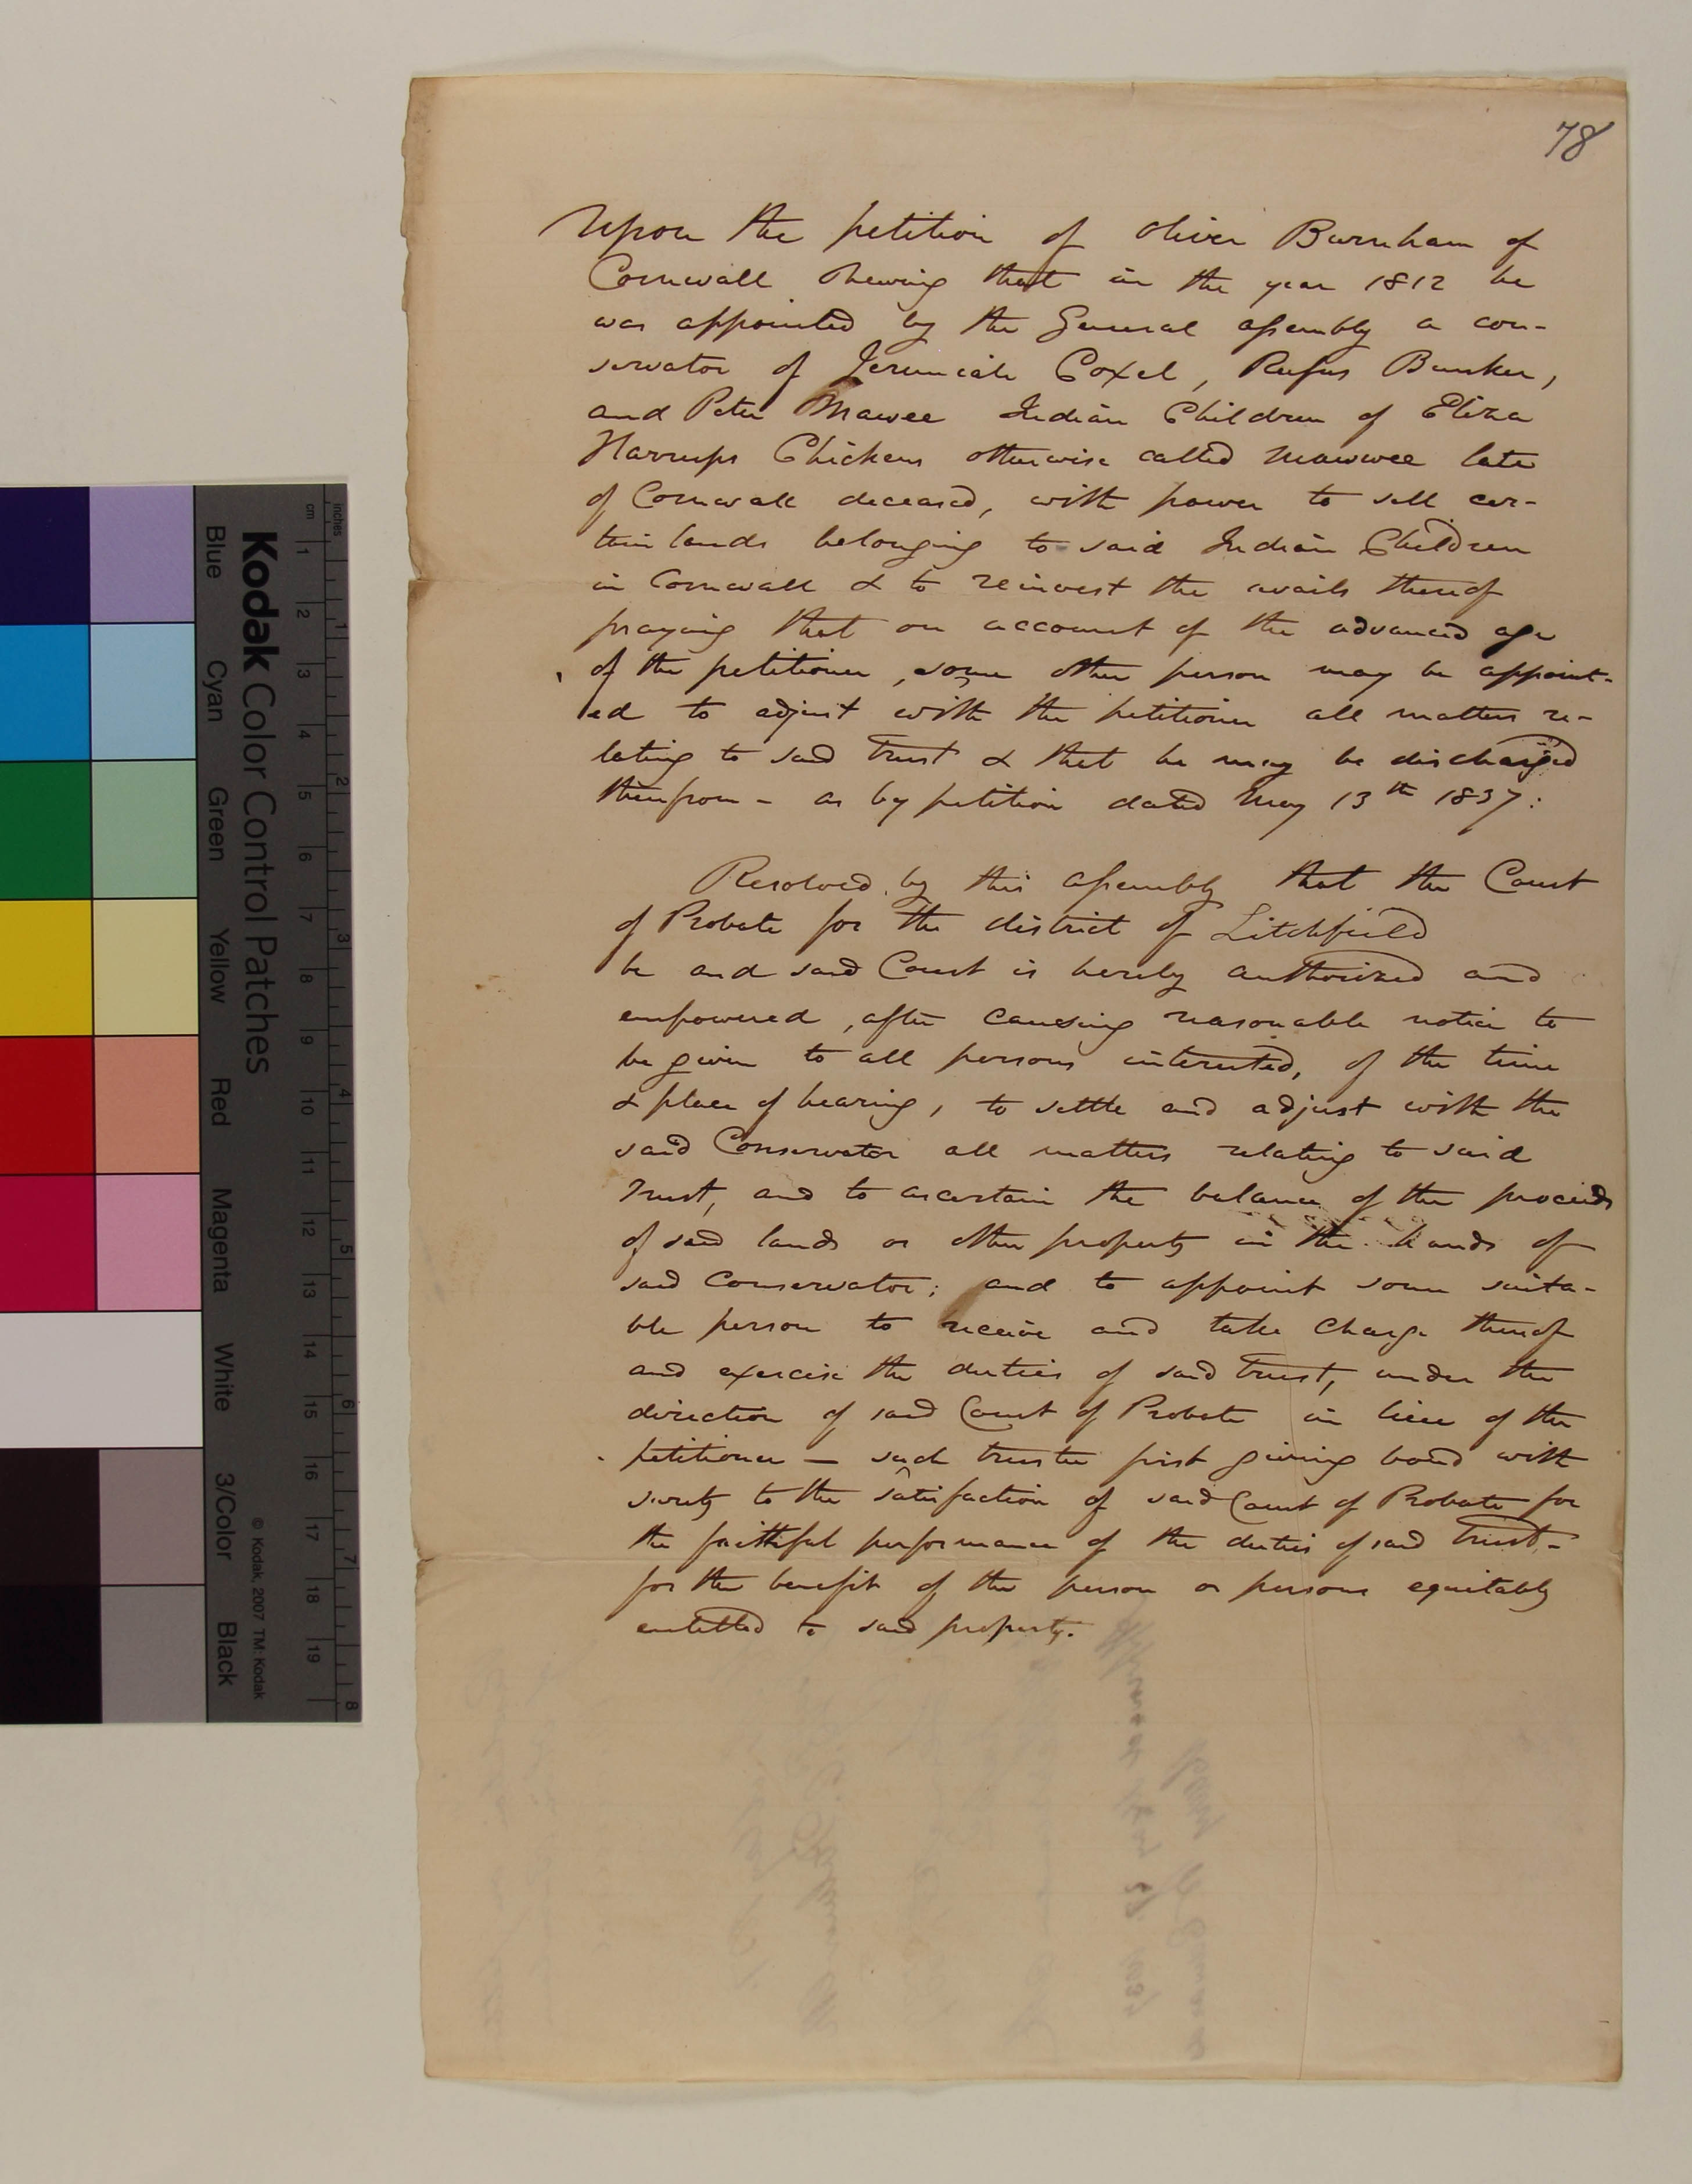 78
Upon the petition of Oliver Burnham of
Cornwall shewing that in the year 1812 he
was appointed by the General assembly a con-
servator of Jerumiah Coxel, Rufus Bunker,
and Peter Mawee Indian Children of Eliza
Harrups Chickens otherwise called Mawwee late
of Cornwall deceased, with power to sell cer-
tain lands belonging to said Indian Children
in Cornwall & to reinvest the avails thereof
praying that on account of the advanced age
of the petitioner, some other person may be appoint-
ed to adjust with the petitioner all matters re-
lating to said trust & that he may be discharged
therefrom - as by petition dated May 13th 1837:
Resolved by this assembly that the Court
of Probate for the district of Litchfield
be and said Court is hereby authorized and
empowered, after causing reasonable notice to
be given to all persons interested, of the time
& place of hearing, to settle and adjust with the
said Conservator all matters relating to said
Trust, and to ascertain the balance of the proceeds
of said lands or other property in the hands of
said Conservator; and to appoint some suita-
ble person to receive and take charge thereof
and exercise the duties of said trust, under the
direction of said Court of Probate in lieu of the
petitioner — such trustee first giving bond with
surety to the satisfaction of said Court of Probate for
the faithful performance of the duties of said trust -
for the benefit of the person or persons equitably
entitled to said property.
Kodak Color Control Patches
Blue Cyan Green Yellow Red Magenta White 3/Color Black
© Kodak, 2007 TM: Kodak
inches 1 2 3 4 5 6 7 8
cm 1 2 3 4 5 6 7 8 9 10 11 12 13 14 15 16 17 18 19